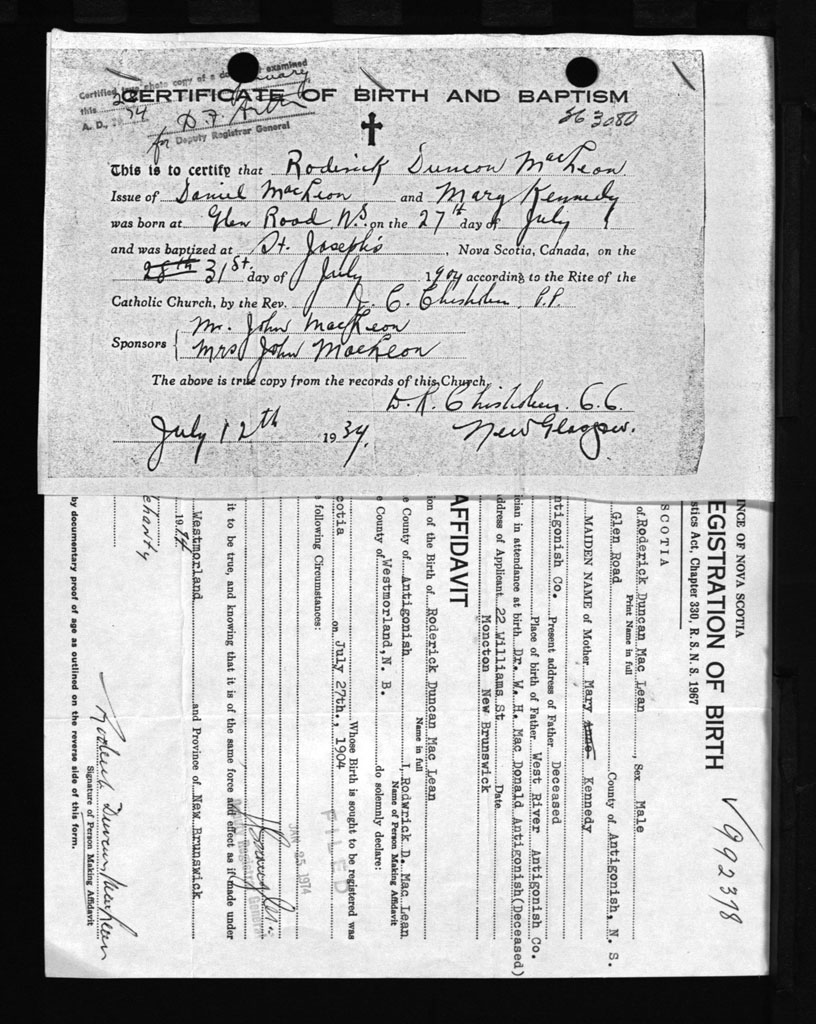 Certified photo copy of a examined
this January
A. D., 74 D. F. Arthur
for Deputy Registrar General
CERTIFICATE OF BIRTH AND BAPTISM
363080
This is to certify that Roderick Duncan MacLean
Issue of Daniel MacLean and Mary Kennedy
was born at Glen Road N.S. on the 27th day of July
and was baptized at St. Joseph's, Nova Scotia, Canada, on the
28th 31st day of July 1904 according to the Rite of the
Catholic Church, by the Rev. C. Chisholm P.P.
Sponsors { Mr. John MacLean
Mrs John MacLean
The above is true copy from the records of this Church,
D. R. Chisholm C.C.
July 12th 1934. New Glasgow.
INCE OF NOVA SCOTIA
EGISTRATION OF BIRTH
992378
stics Act, Chapter 330, R. S. N. S. 1967
SCOTIA
of Roderick Duncan Mac Lean, Sex Male
Print Name in full
Glen Road County of Antigonish, N. S.
MAIDEN NAME of Mother Mary Anne Kennedy
ntigonish Co. Present address of Father Deceased
Place of birth of Father West River Antigonish Co.
ician in attendance at birth Dr. W. H. Mac Donald Antigonish(Deceased)
ddress of Applicant 22 Williams St Date
Moncton New Brunswick
AFFIDAVIT
ion of the Birth of Roderick Duncan Mac Lean
Name in full
e County of Antigonish I, Rodwrick D. Mac Lean
Name of Person Making Affidavit
e County of Westmorland, N. B. do solemnly declare:
Whose Birth is sought to be registered was
cotia on July 27th., 1904
following Circumstances:
FILED
JAN 25 1974
it to be true, and knowing that it is of the same force and effect as if made under
Westmorland and Province of New Brunswick
1974
Roderick Duncan MacLean
Signature of Person Making Affidavit
by documentary proof of age as outlined on the reverse side of this form.